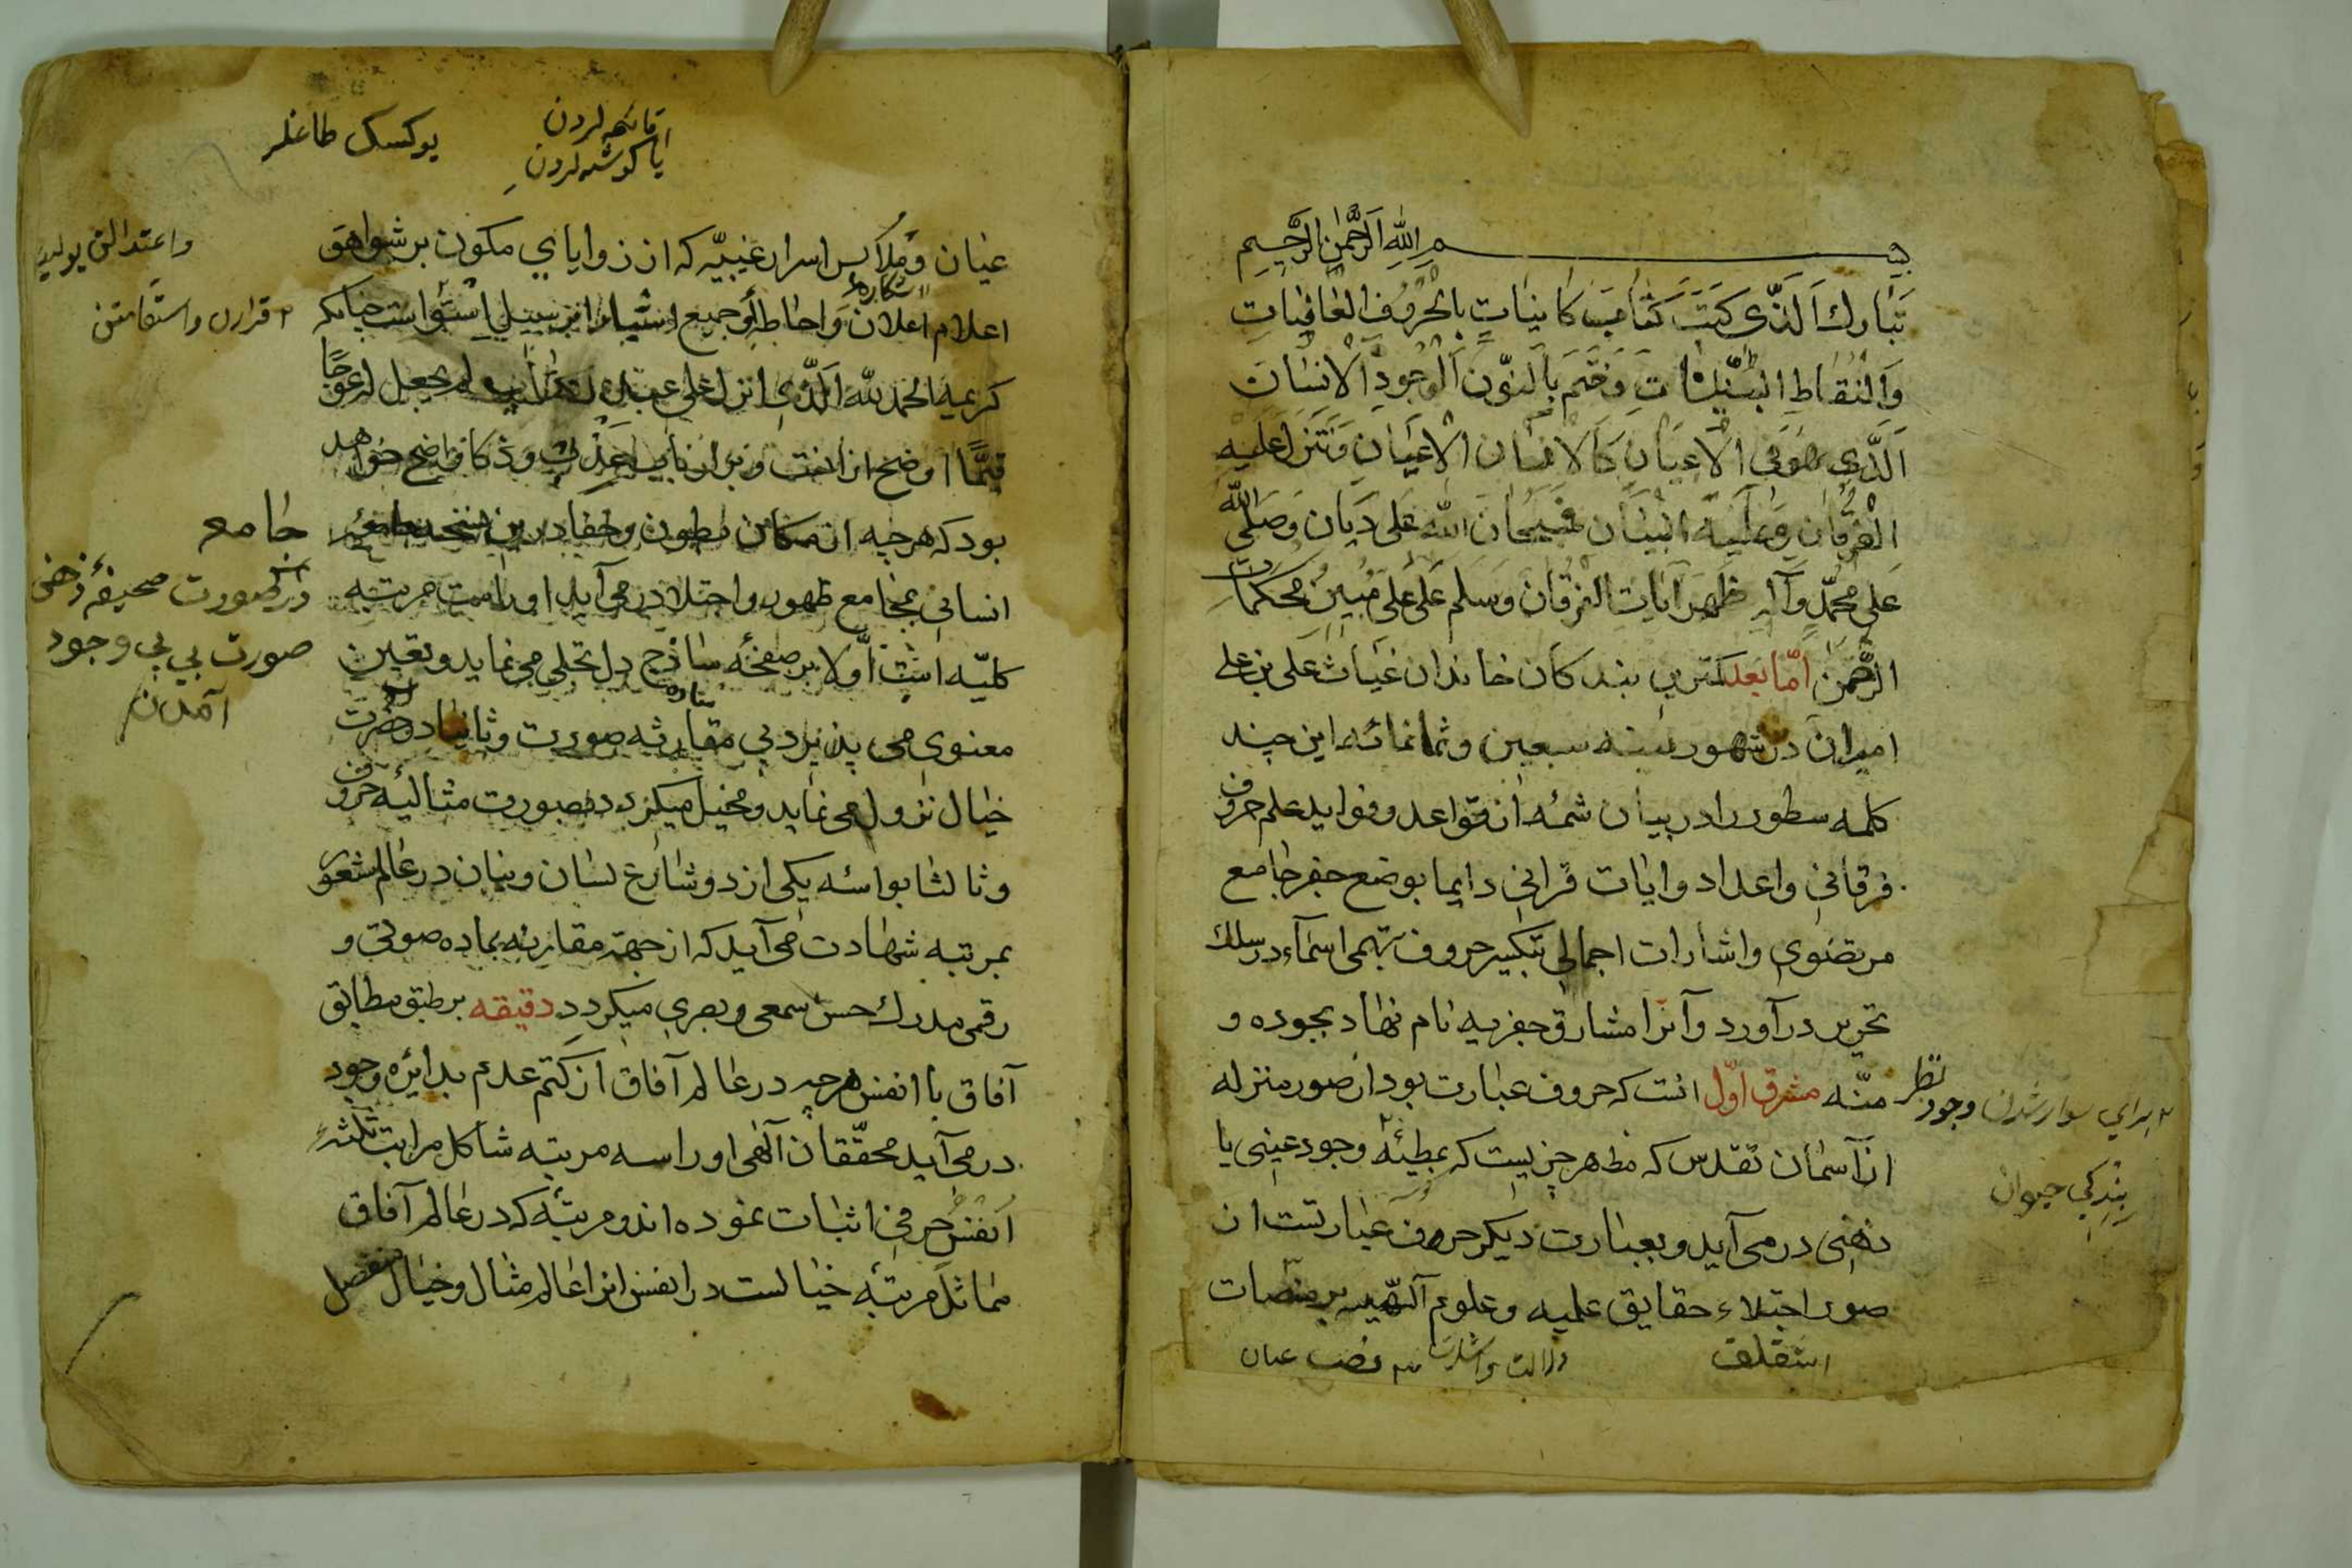 بسم الله الرحمن الرحيم
تبارك الذى كتب كتاب كاينات بالحروف العاليات
والنقاط البينات وختم بالنون الوجود الانسان
الذى هو فى الاعيان كالانسان الاعيان وتنزل عليه
الفرقان وعليه البيان فسبحان الله على ديان وصلى الله
على محمد وآله ظهر آيات الفرقان وسلم على على مبين محكمات
الرحمن اما بعد كمترين بندكان خاندان غياث على بن على
اميران در شهور سنه سبعين وثمانمائه اين چند
كلمه سطور را در بيان شمه از قواعد وفوايد علم حروف
فرقانى واعداد وايات قرانى دايما بوضع جفر جامع
مرتضوى واشارات اجمالى بتكسير حروف تهجى اسماء در سلك
تحرير در آورد وآنرا مشارق جفريه نام نهاد بجوده و
منّه مشرق اوّل انست كه حروف عبارت بود از صور منزله
از آسمان تقدس كه مظهر چيزيست كه بمطيئهٔ وجود عينى يا
ذهنى در مى آيد وبعبارت ديكر حروف عبارتست از
صور اجتلاء حقايق علميه وعلوم آلهيه بر منصات
نظر
۲ براي سوار شدن وجود
بندكى حيوان
دلالت واشارت نصب عيان
اوقاتهلردن
يا كوشهلردن
يوكسك طاغلر
عيان وملابس اسرار غيبيّه كه از زواياي مكون بر شواهق
آشكاره
اعلام اعلان واحاطه او جميع اشيا را بر سبيل استواست چنانكه
كريمه الحمد لله الذى انزل على عبده الكتاب ولم يجعل له عوجا
قيمًا اوضح از انست وبر ارباب وذكا واضح خواهد
بود كه هرچه از مكامن بطون وخفا درين نسخه جامعه
انسانى بمجامع ظهور واجتلا در مى آيد او را ست مرتبه
كليّه است اوّلا بر صفحهٔ ساذج دل تجلى مى نمايد وتعين
ساده
معنوى مى پذيرد بى مقارنه صورت وثانيا در حضرت
خيال نزول مى نمايد ومخيل ميكردد در صورت مثاليهٔ حروف
وثالثا بواسئه يكى از دو شارع لسان وبنان در عالم شعور
بمرتبه شهادت مى آيد كه از جهة مقارنه بماده صوتى و
رقمى مدرك حس سمعى وبصرى ميكردد دقيقه بر طبق مطابق
آفاق با انفس هرچه در عالم آفاق از كتم عدم بدائره وجود
در مى آيد محقّقان آلهى او را سه مرتبه شاكل مراتب ثلثهٔ
انفس حرفى اثبات نموده اند ومرتبهٔ كه در عالم آفاق
مماثل مرتبهٔ خيالست در انفس انرا عالم مثال وخيال منفصل
واعتدالق يولينه
۲ قرارن واستقامتن
جامع
در صورت صحيفهٔ ذهنى
صورت بى بى وجود
آمدن